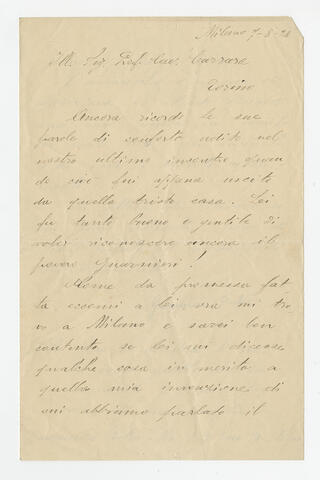 Milano 7-8-28
Ill. Sig. Prof. Cav. Carrara
Torino
Ancora ricordo le sue
parole di conforto udite nel
nostro ultimo incontro quan
do cioè fui appena uscito
da quella triste casa. Lei
fu tanto buono e gentile di
voler riconoscere ancora il
povero Guarnieri!
Come da promessa fat
ta eccomi a lei, ora mi tro
vo a Milano e sarei ben
contento se lei mi dicesse
qualche cosa in merito a
quella mia invenzione di
cui abbiamo parlato il